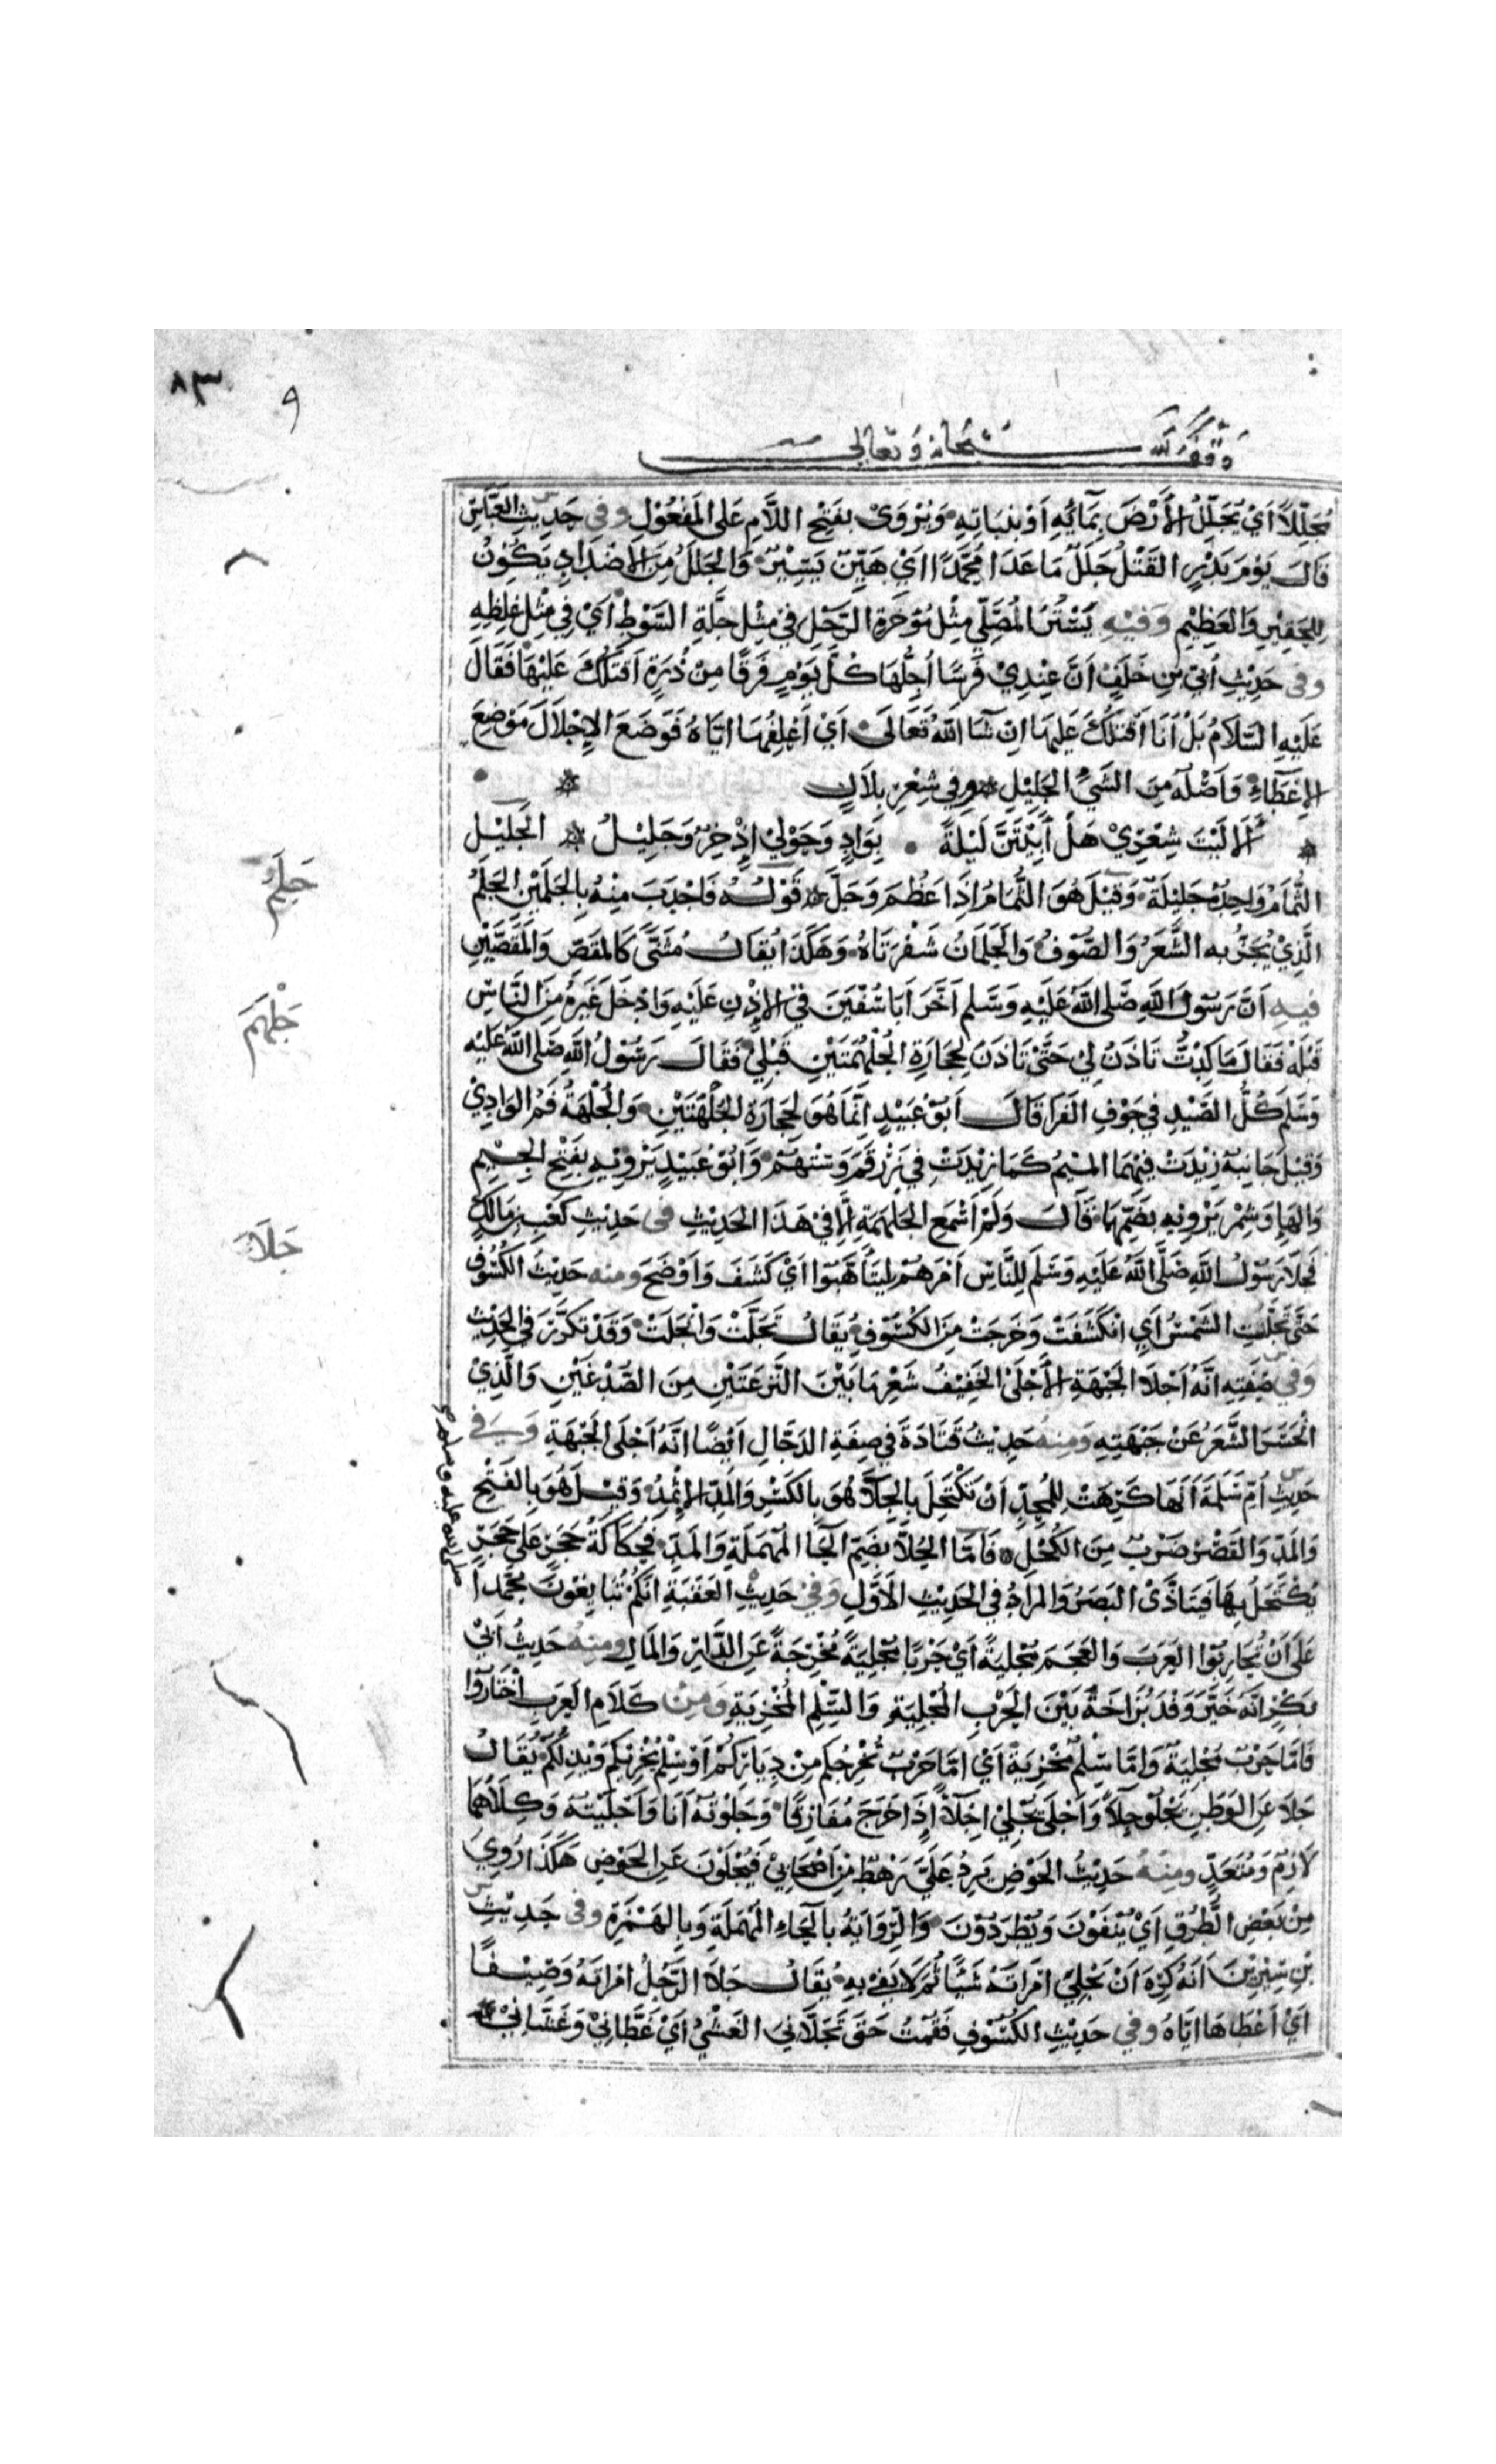 ٨٣
٩
وقف لله سبحانه وتعالى
مُجَلِّلًا اَيْ يُجَلِّلُ الأَرْضَ بِمَائِهِ اَوْ بِنَبَاتِهِ وَيُرْوَى بفَتْحِ اللَّامِ عَلى المَفْعُوْلِ وفى حَدِيثِ العَبَّاسِ
قَالَ يَوْمَ بَدْرٍ القَتْلُ جَلَلٌ مَا عَدَا مُحَمَّدًا اَيْ هَيِّنٌ يَسِيْرٌ وَالجَلَلُ مِنَ الاضْدَادِ يَكُوْنُ
لِلحَقِيْرِ وَالعَظِيْمِ وَفِيْهِ يَسْتُرُ المُصَلِّي مِثْلُ مُؤْخَرَةِ الرَّحْلِ فِيْ مِثْلِ جِلَّةِ السَّوْطِ اَيْ فِي مِثْلِ غِلَظِهِ
وفى حَدِيْثِ اُبَيّ بْنِ خَلَفٍ اَنَّ عِنْدِيْ فَرَسًا اُجِلُّهَا كُلَّ يَوْمٍ فَرَقًا مِنْ ذُرَةٍ اَقْتُلُكَ عَلَيْهَا فَقَالَ
عَلَيْهِ السَّلَامُ بَلْ اَنَا اَقْتُلُكَ عَلَيهَا اِنْ شَا اللهُ تَعَالَى اَيْ اَعْلِفُهَا اِيَّاهُ فَوَضَعَ الاِجْلَالَ مَوْضِعَ
الاِعْطَاءِ وَاَصْلُهُ مِنَ الشَّيْءِ الجَلِيْلِ وفي شِعْرِ بِلَالٍ
اَلَا لَيْتَ شِعْرِيْ هَلْ اَبِيْتَنَّ لَيْلَةً بِوَادٍ وَحَوْلِيْ اِذْخِرٌ وَجَلِيْلُ الجَلِيْل
الثُّمَامُ وَاحِدُهُ جَلِيْلَةٌ وَقِيْلَ هُوَ الثُّمَامُ اِذَا عَظُمَ وَجَلَّ قَوْلُهُ فَاحْدَبَ مِنْهُ بِالجَلَمَيْنِ الجَلَمُ
الَّذِيْ يُجَزُّ بِهِ الشَّعَرُ وَالصُّوْفُ وَالجَلَمَانُ شَفْرَتَاهُ وَهَكَذَا يُقَالُ مُثَنًّى كَالمِقَصّ وَالمِقَصَّيْنِ
فِيهِ اَنَّ رَسُوْلَ اللهِ صَلى اللهُ عَلَيْهِ وَسَلم اَخَّرَ اَبَا سُفْيَنَ فِي الاِذْنِ عَلَيْهِ وَادْخَلَ غَيْرَهُ مِنَ النَّاسِ
قَبْلَهُ فَقَالَ مَا كِدْتَ تَاذَنُ لِيْ حَتَّى تَاذَنَ لِحِجَارَةِ الجُلْهُمَتَيْنِ قَبْلِيْ فَقَالَ رَسُوْلُ اللهِ صَلى اللهُ عَلَيْه
وَسَلم كُلُّ الصَّيْدِ في جَوْفِ الفَرَا قَالَ اَبُوْ عُبَيْدٍ اِنَّمَا هُوَ لِحِجَارَةِ الجَلْهَتَيْنِ وَالجَلْهَةُ فَمُ الوَادِيْ
وَقِيلَ جَانِبُهُ زِيْدَتْ فِيْهَمَا المِيْمُ كَمَا زِيْدَتْ فِي زُرْقُمٍ وَسُتْهُمٍ وَاَبُوْ عُبَيْدٍ يَرْوِيْهِ بِفَتْحِ الجِيْمِ
وَالهَا وَشِمْر يَرْوِيْهِ بِضَمِّهَا قَالَ وَلَمْ اَسْمَعِ الجلْهُمَةِ اِلَّا فِيْ هَذَا الحَدِيْثِ فى حَدِيْثِ كَعْبِ بْنِ مَالِكٍ
فَجَلَا رَسُوْلُ اللهِ صَلَّى اللهُ عَلَيْهِ وَسَلَّم لِلنَّاسِ اَمْرَهُمْ لِيَتَأَهَّبُوْا اَيْ كَشَفَ وَاَوْضَحَ ومنه حَدِيْثُ الكُسُوْفِ
حَتّى تَجَلَّتِ الشَّمْسُ اَيِ انْكَشَفَتْ وَخَرَجَتْ مِنَ الكُسُوْفِ يُقَالُ تَجَلَّتْ وَانْجَلَتْ وَقَدْ تَكَرَّرَ في الحَدِيْث
وَفي صِفَتِهِ اَنَّهُ اَجْلَا الجَبْهَةِ الأَجْلَىْ الخَفِيْفُ شَعَرِ مَا بَيْنَ النَّزْعَتَيْنِ مِنَ الصُّدْغَيْنِ وَالَّذِيْ
انْحَسَرَ الشَّعَرُ عَنْ جَبْهَتِهِ وَمِنْهُ حَدِيْثُ قَتَادَةَ في صِفَةِ الدَّجَّالِ اَيْضًا اَنَّهُ اَجْلَى الجَبْهَةِ وَفِي
حَدِيْثِ اُمّ سَلَمَةَ اَنَّهَا كَرِهَتْ لِلمُحِدِّ اَنْ تَكْتَحِلَ بِالجِلَآءِ هُوَ بِالكَسْرِ وَالمَدِّ الاِثْمِدُ وَقِيْلَ هُوَ بِالفَتْحِ
وَالمَدِّ وَالقَصْرِ ضَرْبٌ مِنَ الكُحْلِ فَامَّا الحُلَآءُ بِضَمِّ الحَا المُهْمَلَةِ وَالمَدِّ فَحُكَاكَةُ حَجَرٍ عَلَى حَجَرٍ
يُكْتَحَلُ بِهَا فَيَتَاذَّى البَصَرُ وَالمُرَادُ في الحَدِيْثِ الاَوَّلُ وَفي حَدِيْثِ العَقَبَةِ اِنَّكُمْ تُبَايِعُوْنَ مُحَمَّدا
عَلى اَنْ تُحَارِبُوْا العَرَبَ وَالعَجَمَ مُجْلِيَةً اَيْ حَرْبًا مُجْلِيَةً مُخْرِجَةً عَنِ الدَّارِ وَالمَالِ ومِنْهُ حَدِيْثُ اَبِيْ
بَكْرٍ اَنَّهُ خَيَّرَ وَفْدَ بُزَاخَةَ بَيْنَ الحَرْبِ المُجْلِيَةِ وَالسِّلْمِ المُخْزِيَةِ وَمِنْ كَلَامِ العَرَبِ اخْتَارُوْا
فَامَّا حَرْبٌ مُجْلِيَةٌ وَاِمَّا سِلْمٌ مُخْزِيَةٌ اَيْ اِمَّا حَرْبٌ تُخْرِجُكم مِنْ دِيَارِكُمْ اَوْ سِلْمٌ تُخْزِيْكُم وَتُذِلُّكُمْ يُقَالُ
جَلَا عَنِ الوَطَنِ يَجْلُوْ جَلَآءً وَاَجْلَى يُجْلِيْ اِجْلَآءً اِذَا خَرَجَ مُفَارِقًا وَجَلَوْتُهُ اَنَا وَاَجْلَيْتُهُ وَكِلَاهُمَا
لَازِمٌ وَمُتَعَدٍّ ومِنْهُ حَدِيْثُ الحَوْضِ يَرِدُ عَلَيَّ رَهْطٌ مِنْ اَصْحَابِيْ فَيُجْلَوْنَ عَنِ الحَوْضِ هَكَذَا رُوِيَ
مِنْ بَعْضِ الطُّرُقِ اَيْ يُنْفَوْنَ وَيُطْرَدُوْنَ وَالرِّوَايَةُ بِالحَاءِ المُهْمَلَةِ وَبِالهَمْزَةِ وفى حَدِيْثِ
بْنِ سِيْرِيْنَ اَنَّهُ كَرِهَ اَنْ يَجْلِيَ امْرَاتَهُ شَيًا ثُمَّ لَا يَفِيْ بِهِ يُقَالُ جَلَا الرَّجُلُ امْرَاتَهُ وَصِيْفًا
اَيْ اَعْطَاهَا اِيَّاهُ وفي حَدِيْثِ الكُسُوْفِ فَقُمْتُ حَتَّى تَجَلَّانِيَ الغَشْيُ اَيْ غَطَّانِيْ وَغَشَّانِيْ
جَلَمٌ
جَلْهَم
جَلَا